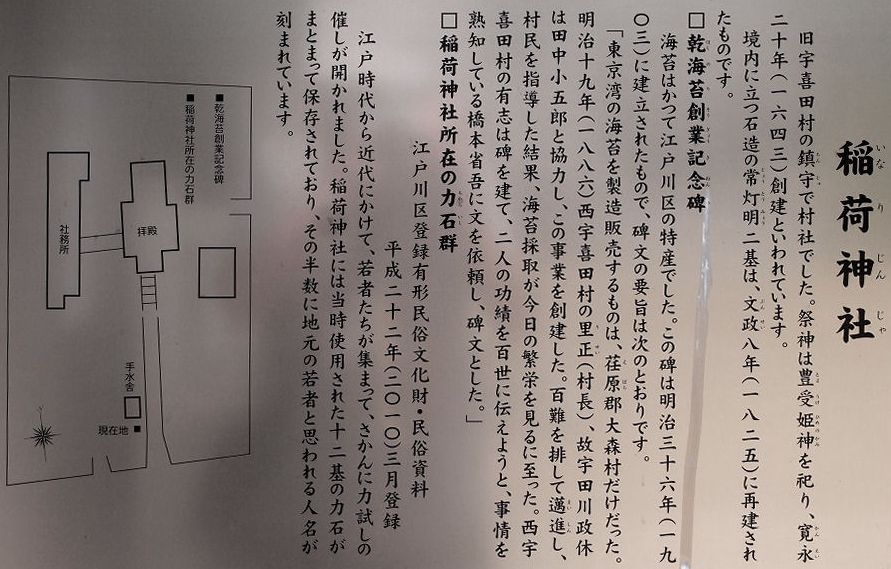 稲荷神社
いなりじんじゃ
旧宇喜田村の鎮守で村社でした。祭神は豊受姫神を祀り、寛永
二十年(一六四三)創建といわれています。
境内に立つ石造の常灯明二基は、文政八年(一八二五)に再建され
たものです。
□乾海苔創業記念碑
海苔はかつて江戸川区の特産でした。この碑は明治三十六年(一九
〇三)に建立されたもので、碑文の要旨は次のとおりです。
「東京湾の海苔を製造販売するものは、荏原郡大森村だけだった。
明治十九年(一八八六)西宇喜田村の里正(村長)、故宇田川政休
は田中小五郎と協力し、この事業を創建した。百難を排して邁進し、
村民を指導した結果、海苔採取が今日の繁栄を見るに至った。西宇
喜田村の有志は碑を建て、二人の功績を百世に伝えようと、事情を
熟知している橋本省吾に文を依頼し、碑文とした。」
□稲荷神社所在の力石群
江戸川区登録有形民俗文化財・民俗資料
平成二十二年(二〇一〇)三月登録
江戸時代から近代にかけて、若者たちが集まって、さかんに力試しの
催しが開かれました。稲荷神社には当時使用された十二基の力石が
まとまって保存されており、その半数に地元の若者と思われる人名が
刻まれています。
■乾海苔創業記念碑
■稲荷神社所在の力石群
拝殿
社務所
手水舎
現在地■